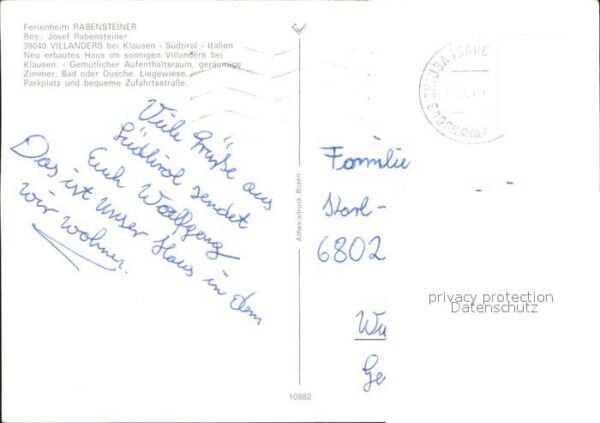 Ferienheim RABENSTEINER
Bes.: Josef Rabensteiner
39040 VILLANDERS bei Klausen - Südtirol - Italien
Neu erbautes Haus im sonnigen Villanders bei
Klausen. - Gemütlicher Aufenthaltsraum, geräumige
Zimmer, Bad oder Dusche, Liegewiese,
Parkplatz und bequeme Zufahrtsstraße.
Viele Grüße aus
Südtirol sendet
Euch Wolfgang
Das ist unser Haus in dem
wir wohnen.
Athesiadruck Bozen
10882
CHIUSA ISARC
Familie
Karl-
6802
Wu
Ge
privacy protection
Datenschutz